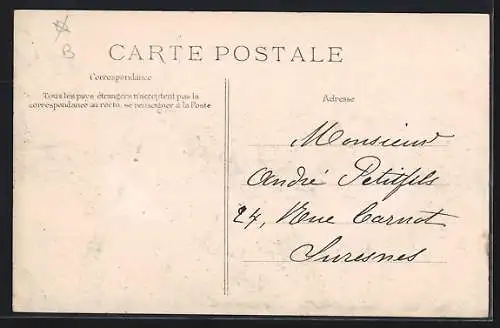 B
CARTE POSTALE
Correspondance
Tous les pays étrangers n'acceptent pas la
correspondance au recto, se renseigner à la Poste
Adresse
Monsieur
André Petitfils
24, Rue Carnot
Suresnes